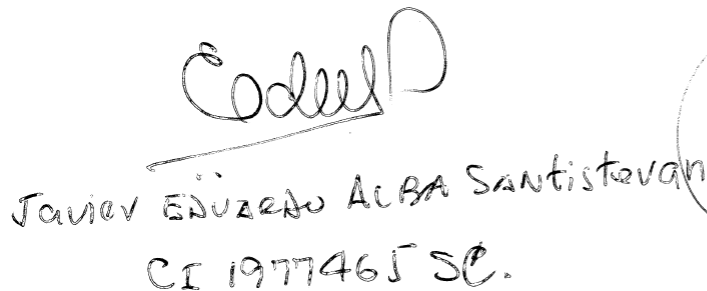 Javier EDUARDO ALBA Santistevan
CI 1977465 SC.